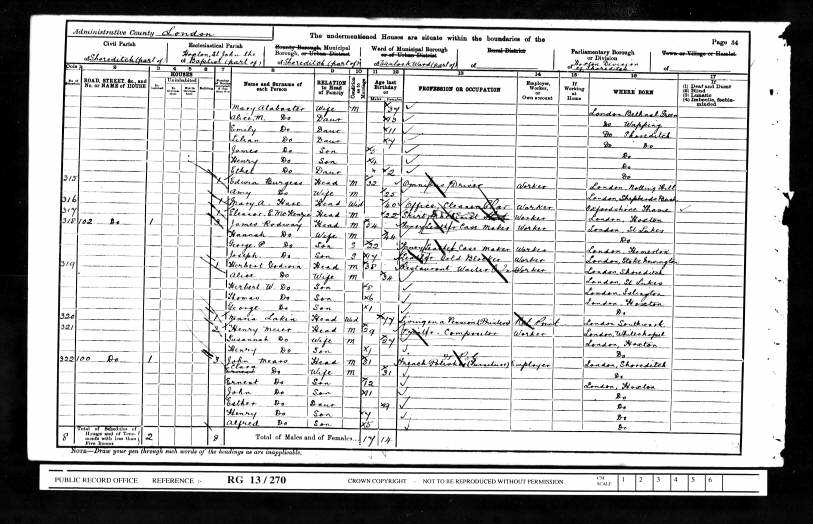 Administrative County London
The undermentioned Houses are situate within the boundaries of the
Page 34
Civil Parish
Ecclesiastical Parish
County Borough, Municipal Borough, or Urban District
Ward of Municipal Borough or of Urban District
Rural District
Parliamentary Borough or Division
Town or Village or Hamlet
of Shoreditch (part of)
Hoxton, St John the Baptist (part of)
of Shoreditch (part of)
of
of
Cols. 1 2 3 4 5 6 7 8 9 10 11 12 13 14 15 16 17
ROAD, STREET, &c., and No. or NAME of HOUSE
HOUSES
Name and Surname of each Person
RELATION to Head of Family
Age last Birthday of
PROFESSION OR OCCUPATION
Employer, Worker, or Own account
If Working at Home
WHERE BORN
(1) Deaf and Dumb
(2) Blind
(3) Lunatic
(4) Imbecile, feeble-minded
Mary Alabaster Wife M 37 London Bethnal Green
Alice M. Do Daur 13 Do Wapping
Emily Do Daur 11 Do Shoreditch
Lilian Do Daur 7 Do Do
James Do Son Do
Henry Do Son 4 Do
Ethel Do Daur 2 Do
315 1 Edwin Burgess Head M 32 Omnibus Driver Worker London, Notting Hill
Amy Do Wife M 25 London Shepherds Bush
316 1 Mary A. Hase Head Wid 60 Office Cleaner Char Worker Oxfordshire Thame
317 1 Eleanor E. McKenzie Head M 22 Worker London, Hoxton
318 102 Do 1 James Rodway Head M 54 Case Maker Worker London, St Lukes
Hannah Do Wife M 44 Do
George P. Do Son S 22 Case Maker Worker London, Homerton
Joseph Do Son S 17 Gold Blocker Worker London, Stoke Newington
319 1 Herbert Head M 38 Restaurant Waiter Worker London, Shoreditch
Alice Do Wife M 34 London, St Lukes
Herbert W. Do Son 8 London, Islington
Thomas Do Son 6 London, Hoxton
George Do Son 1 Do
320 1 Maria Lakin Head Wid London Southwark
321 2 Henry Meier Head M 29 Compositor Worker London, Whitechapel
Susannah Do Wife M 27 London, Hoxton
Henry Do Son 1 Do
322 100 Do 1 3 John Mears Head M 31 French Polisher (Furniture) Employer London, Shoreditch
Clara Do Wife M 31 Do
Ernest Do Son 12 London, Hoxton
John Do Son 11 Do
Esther Do Daur 9 Do
Henry Do Son 7 Do
Alfred Do Son 5 Do
8 Total of Schedules of Houses and of Tenements with less than Five Rooms 2 9 Total of Males and of Females... 17 14
NOTE—Draw your pen through such words of the headings as are inapplicable.
PUBLIC RECORD OFFICE REFERENCE :- RG 13/270 CROWN COPYRIGHT - NOT TO BE REPRODUCED WITHOUT PERMISSION CM SCALE 1 2 3 4 5 6